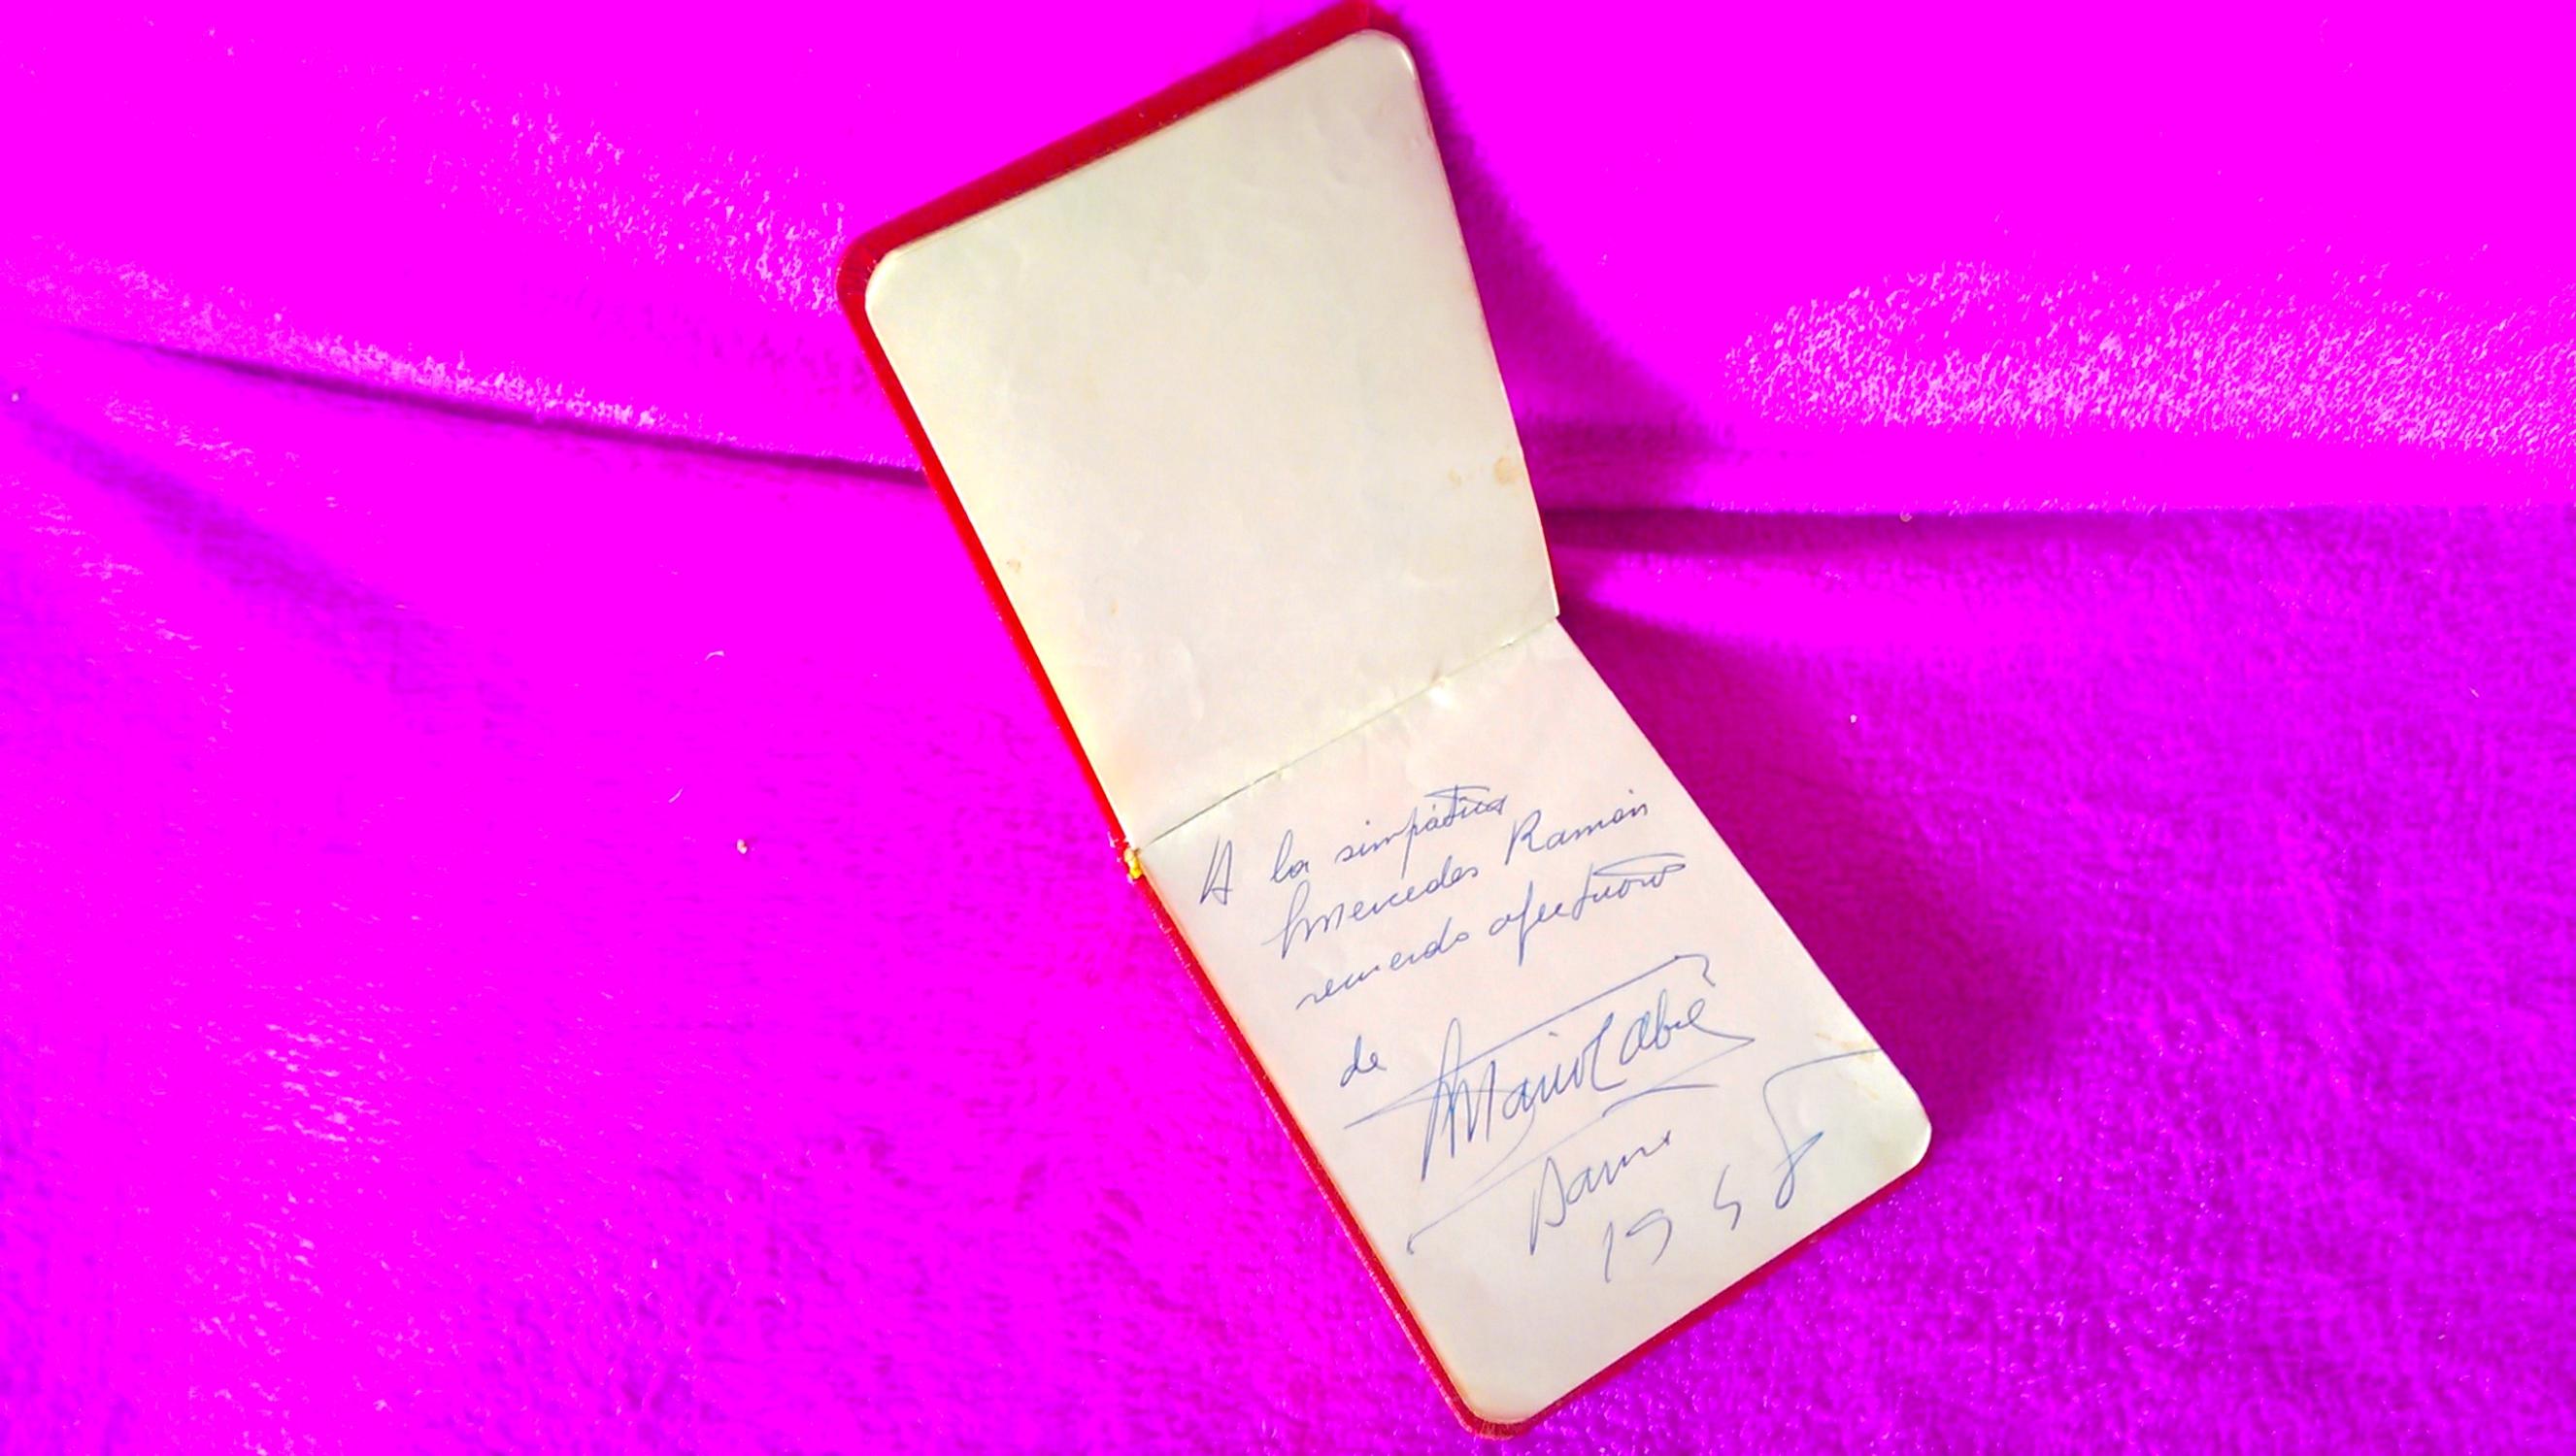 A la simpática
Mercedes Ramón
recuerdo afectuoso
de Mario Cabré
1958